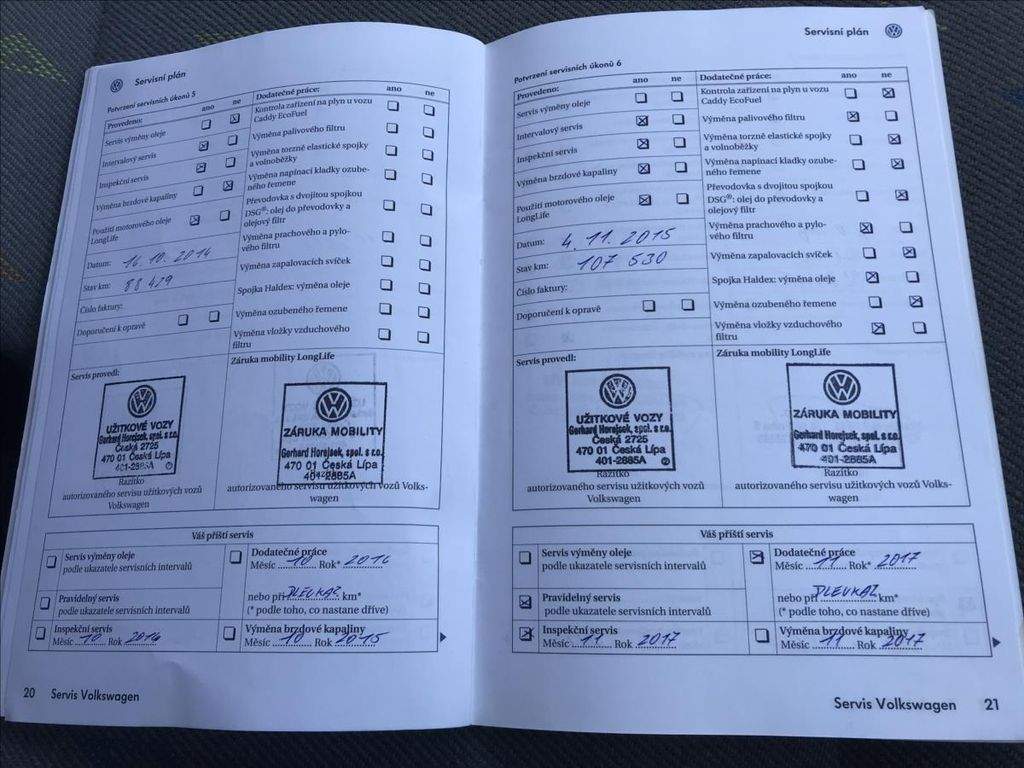 Servisní plán
Potvrzení servisních úkonů 5
Provedeno: ano ne
Servis výměny oleje
Intervalový servis
Inspekční servis
Výměna brzdové kapaliny
Použití motorového oleje
LongLife
Datum: 16. 10. 2014
Stav km: 88 429
Číslo faktury:
Doporučení k opravě
Dodatečné práce: ano ne
Kontrola zařízení na plyn u vozu
Caddy EcoFuel
Výměna palivového filtru
Výměna torzně elastické spojky
a volnoběžky
Výměna napínací kladky ozube-
ného řemene
Převodovka s dvojitou spojkou
DSG®: olej do převodovky a
olejový filtr
Výměna prachového a pylo-
vého filtru
Výměna zapalovacích svíček
Spojka Haldex: výměna oleje
Výměna ozubeného řemene
Výměna vložky vzduchového
filtru
Servis provedl:
UŽITKOVÉ VOZY
Gerhard Horejsek, spol. s r.o.
Česká 2725
470 01 Česká Lípa
401-2885A
Razítko
autorizovaného servisu užitkových vozů
Volkswagen
Záruka mobility LongLife
ZÁRUKA MOBILITY
Gerhard Horejsek, spol. s r.o.
470 01 Česká Lípa
401-2885A
autorizovaného servisu užitkových vozů Volks-
wagen
Váš příští servis
Servis výměny oleje
podle ukazatele servisních intervalů
Pravidelný servis
podle ukazatele servisních intervalů
Inspekční servis
Měsíc 10 Rok 2016
Dodatečné práce
Měsíc 10 Rok* 2016
nebo při km*
(* podle toho, co nastane dříve)
Výměna brzdové kapaliny
Měsíc 10 Rok 2015
20 Servis Volkswagen
Servisní plán
Potvrzení servisních úkonů 6
Provedeno: ano ne
Servis výměny oleje
Intervalový servis
Inspekční servis
Výměna brzdové kapaliny
Použití motorového oleje
LongLife
Datum: 4. 11. 2015
Stav km: 107 530
Číslo faktury:
Doporučení k opravě
Dodatečné práce: ano ne
Kontrola zařízení na plyn u vozu
Caddy EcoFuel
Výměna palivového filtru
Výměna torzně elastické spojky
a volnoběžky
Výměna napínací kladky ozube-
ného řemene
Převodovka s dvojitou spojkou
DSG®: olej do převodovky a
olejový filtr
Výměna prachového a pylo-
vého filtru
Výměna zapalovacích svíček
Spojka Haldex: výměna oleje
Výměna ozubeného řemene
Výměna vložky vzduchového
filtru
Servis provedl:
UŽITKOVÉ VOZY
Gerhard Horejsek, spol. s r.o.
Česká 2725
470 01 Česká Lípa
401-2885A
Razítko
autorizovaného servisu užitkových vozů
Volkswagen
Záruka mobility LongLife
ZÁRUKA MOBILITY
Gerhard Horejsek, spol. s r.o.
470 01 Česká Lípa
401-2885A
Razítko
autorizovaného servisu užitkových vozů Volks-
wagen
Váš příští servis
Servis výměny oleje
podle ukazatele servisních intervalů
Pravidelný servis
podle ukazatele servisních intervalů
Inspekční servis
Měsíc 11 Rok 2017
Dodatečné práce
Měsíc 11 Rok* 2017
nebo při km*
(* podle toho, co nastane dříve)
Výměna brzdové kapaliny
Měsíc 11 Rok 2017
Servis Volkswagen 21